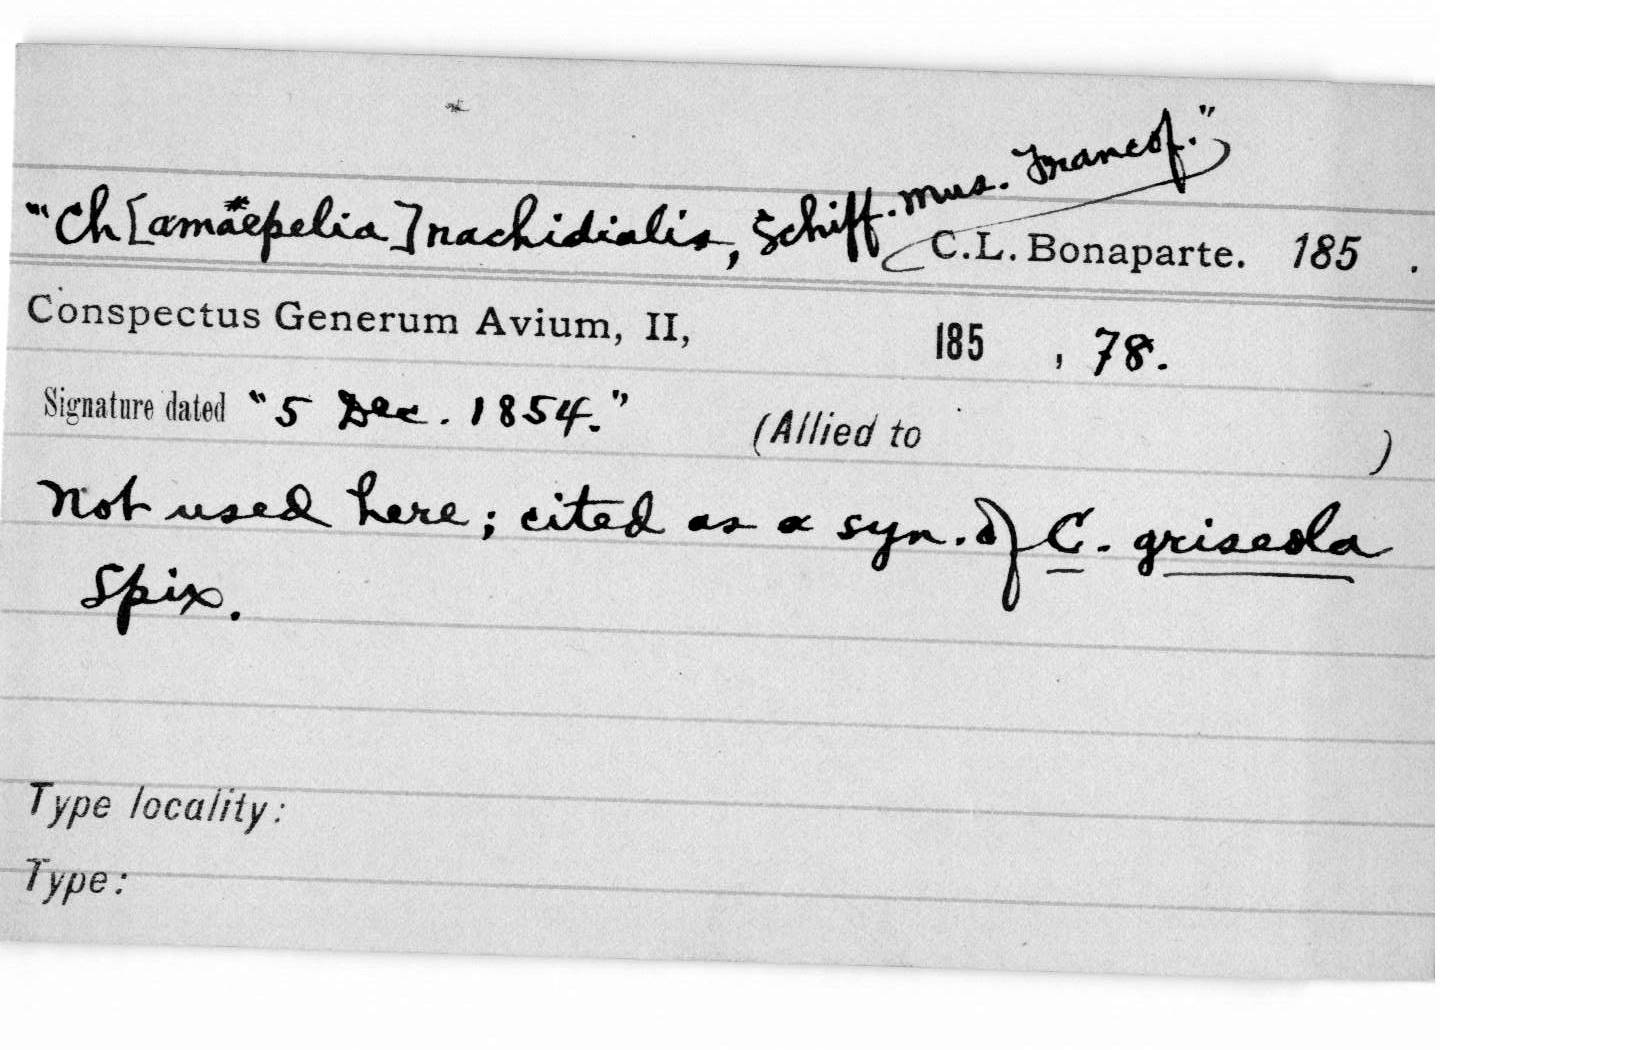 "'Ch[amaepelia] rachidialis, Schiff. mus. Francof."
C.L. Bonaparte. 185 .
Conspectus Generum Avium, II, 185 , 78.
Signature dated "5 Dec. 1854." (Allied to )
Not used here; cited as a syn. of C. griseola
Spix.
Type locality:
Type: